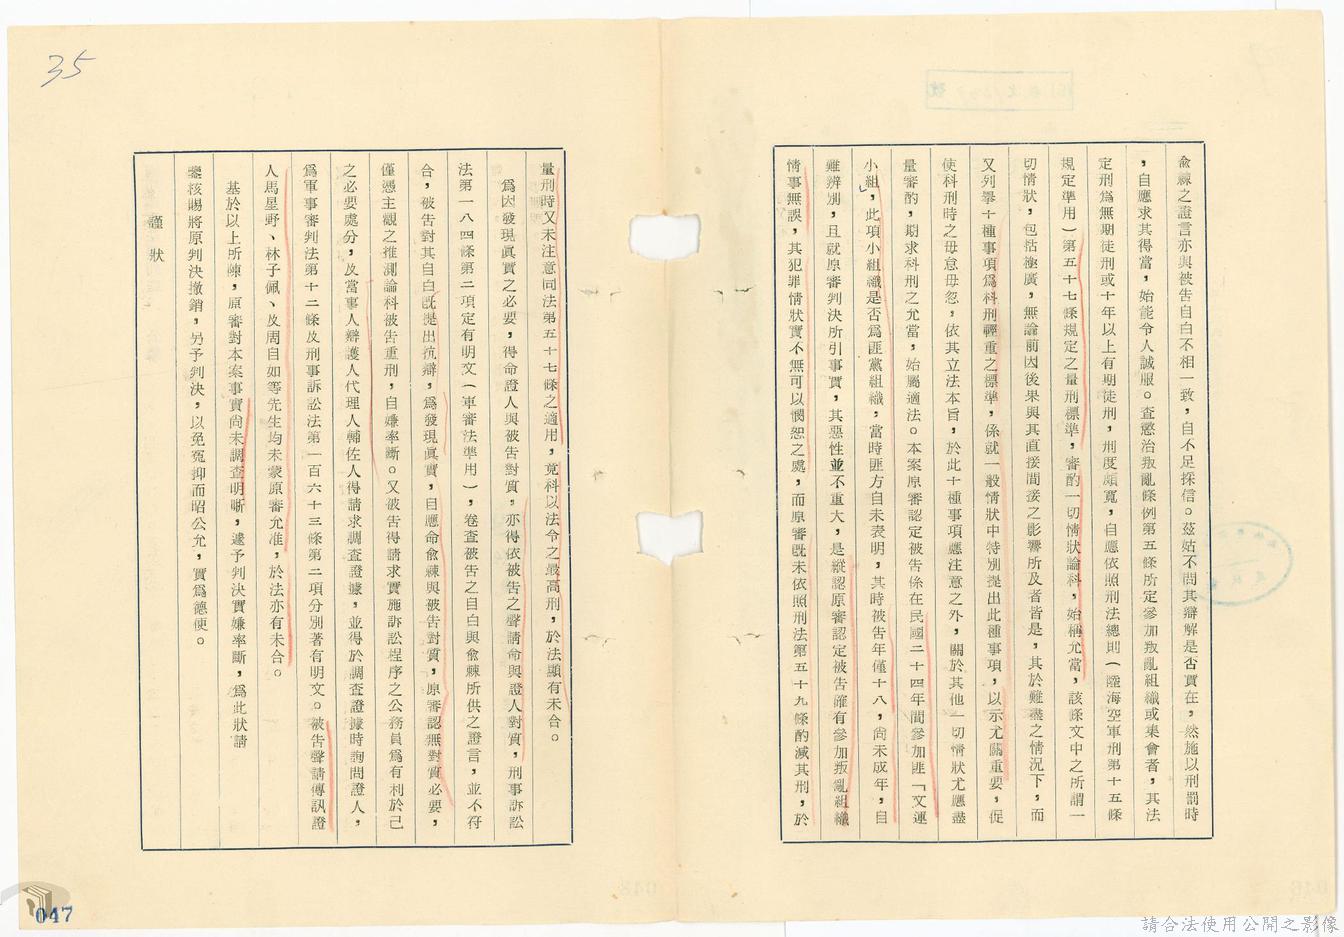 35
俞棘之證言亦與被告自白不相一致，自不足採信。茲姑不問其辯解是否實在，然施以刑罰時
，自應求其得當，始能令人誠服。查懲治叛亂條例第五條所定參加叛亂組織或集會者，其法
定刑為無期徒刑或十年以上有期徒刑，刑度頗寬，自應依照刑法總則（陸海空軍刑第十五條
規定準用）第五十七條規定之量刑標準，審酌一切情狀論科，始稱允當，該條文中之所謂一
切情狀，包括極廣，無論前因後果與其直接間接之影響所及者皆是，其於難盡之情況下，而
又列舉十種事項為科刑輕重之標準，係就一般情狀中特別提出此種事項，以示尤關重要，促
使科刑時之毋怠毋忽，依其立法本旨，於此十種事項應注意之外，關於其他一切情狀尤應盡
量審酌，期求科刑之允當，始屬適法。本案原審認定被告係在民國二十四年間參加匪「文運
小組，此項小組織是否為匪黨組織，當時匪方自未表明，其時被告年僅十八，尚未成年，自
難辨別，且就原審判決所引事實，其惡性並不重大，是縱認原審認定被告確有參加叛亂組織
情事無誤，其犯罪情狀實不無可以憫恕之處，而原審既未依照刑法第五十九條酌減其刑，於
量刑時又未注意同法第五十七條之適用，竟科以法令之最高刑，於法顯有未合。
為因發現真實之必要，得命證人與被告對質，亦得依被告之聲請命與證人對質，刑事訴訟
法第一八四條第二項定有明文（軍審法準用），卷查被告之自白與俞棘所供之證言，並不符
合，被告對其自白既提出抗辯，為發現真實，自應命俞棘與被告對質，原審認無對質必要，
僅憑主觀之推測論科被告重刑，自嫌率斷。又被告得請求實施訴訟程序之公務員為有利於己
之必要處分，及當事人辯護人代理人輔佐人得請求調查證據，並得於調查證據時詢問證人，
為軍事審判法第十二條及刑事訴訟法第一百六十三條第二項分別著有明文。被告聲請傳訊證
人馬星野、林子佩、及周自如等先生均未蒙原審允准，於法亦有未合。
基於以上所陳，原審對本案事實尚未調查明晰，遽予判決實嫌率斷，為此狀請
鑒核賜將原判決撤銷，另予判決，以免冤抑而昭公允，實為德便。
謹狀
047
請合法使用公開之影像